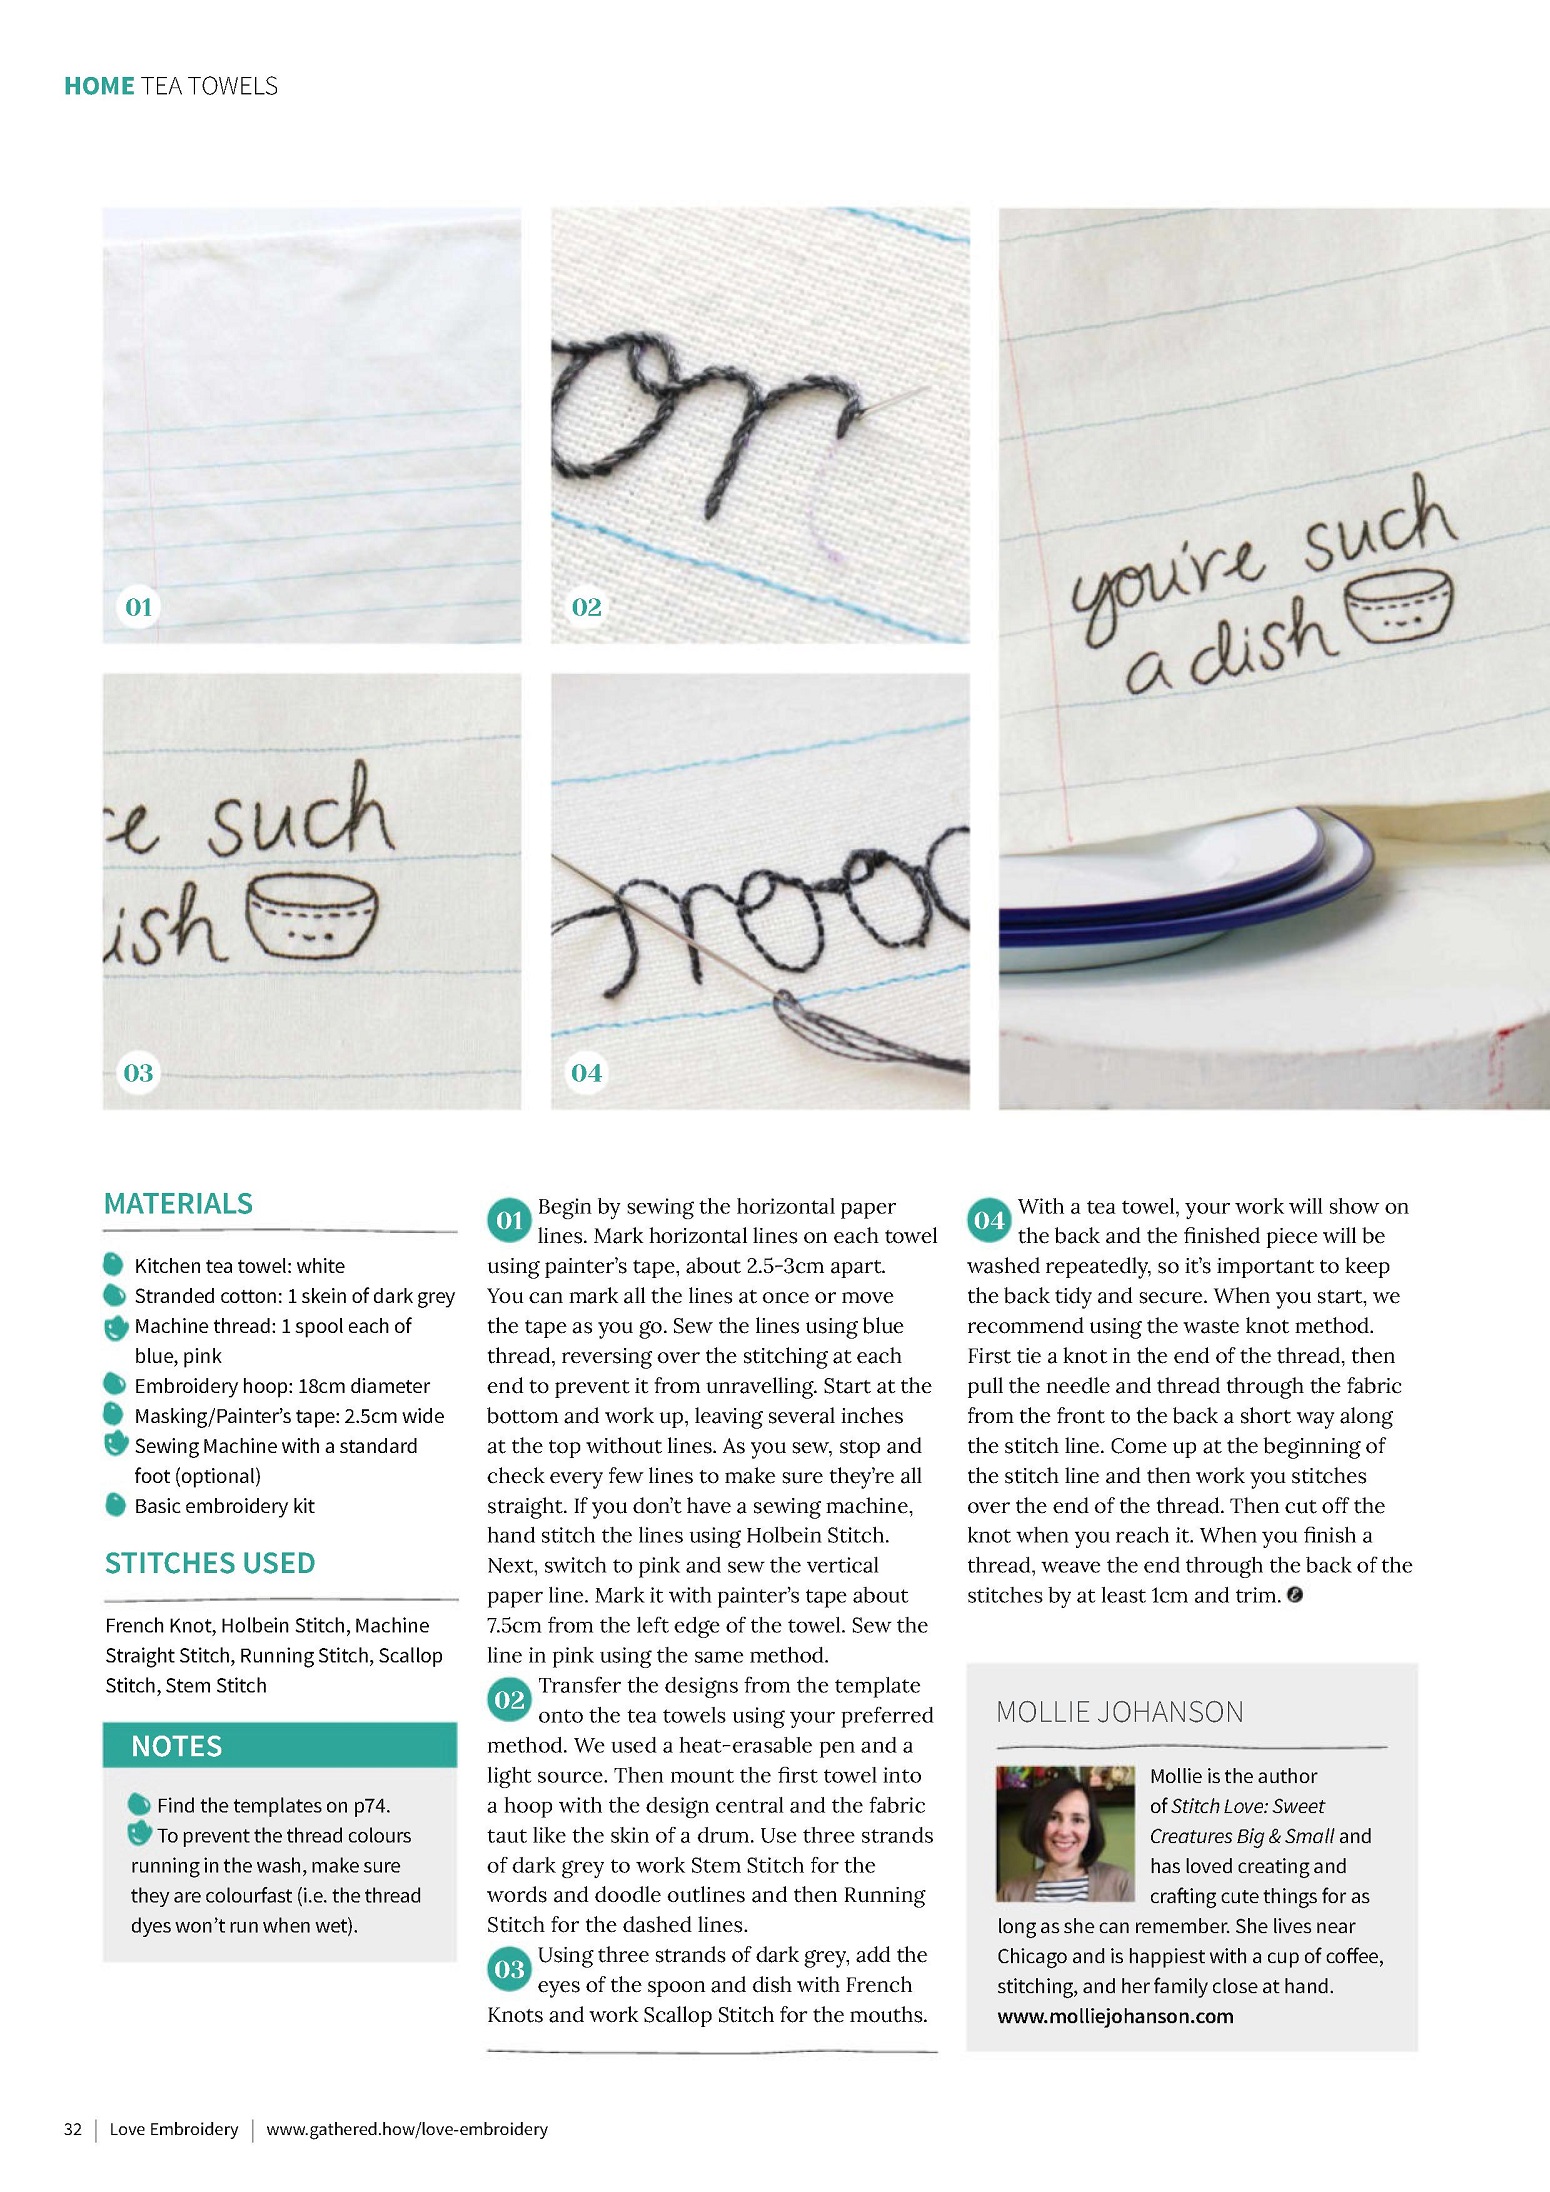 HOME TEA TOWELS
01
02
you're such
a dish
e such
ish
03
04
MATERIALS
Kitchen tea towel: white
Stranded cotton: 1 skein of dark grey
Machine thread: 1 spool each of
blue, pink
Embroidery hoop: 18cm diameter
Masking/Painter's tape: 2.5cm wide
Sewing Machine with a standard
foot (optional)
Basic embroidery kit
STITCHES USED
French Knot, Holbein Stitch, Machine
Straight Stitch, Running Stitch, Scallop
Stitch, Stem Stitch
NOTES
Find the templates on p74.
To prevent the thread colours
running in the wash, make sure
they are colourfast (i.e. the thread
dyes won't run when wet).
01 Begin by sewing the horizontal paper
lines. Mark horizontal lines on each towel
using painter's tape, about 2.5-3cm apart.
You can mark all the lines at once or move
the tape as you go. Sew the lines using blue
thread, reversing over the stitching at each
end to prevent it from unravelling. Start at the
bottom and work up, leaving several inches
at the top without lines. As you sew, stop and
check every few lines to make sure they're all
straight. If you don't have a sewing machine,
hand stitch the lines using Holbein Stitch.
Next, switch to pink and sew the vertical
paper line. Mark it with painter's tape about
7.5cm from the left edge of the towel. Sew the
line in pink using the same method.
02 Transfer the designs from the template
onto the tea towels using your preferred
method. We used a heat-erasable pen and a
light source. Then mount the first towel into
a hoop with the design central and the fabric
taut like the skin of a drum. Use three strands
of dark grey to work Stem Stitch for the
words and doodle outlines and then Running
Stitch for the dashed lines.
03 Using three strands of dark grey, add the
eyes of the spoon and dish with French
Knots and work Scallop Stitch for the mouths.
04 With a tea towel, your work will show on
the back and the finished piece will be
washed repeatedly, so it's important to keep
the back tidy and secure. When you start, we
recommend using the waste knot method.
First tie a knot in the end of the thread, then
pull the needle and thread through the fabric
from the front to the back a short way along
the stitch line. Come up at the beginning of
the stitch line and then work you stitches
over the end of the thread. Then cut off the
knot when you reach it. When you finish a
thread, weave the end through the back of the
stitches by at least 1cm and trim.
MOLLIE JOHANSON
Mollie is the author
of Stitch Love: Sweet
Creatures Big & Small and
has loved creating and
crafting cute things for as
long as she can remember. She lives near
Chicago and is happiest with a cup of coffee,
stitching, and her family close at hand.
www.molliejohanson.com
32 | Love Embroidery | www.gathered.how/love-embroidery